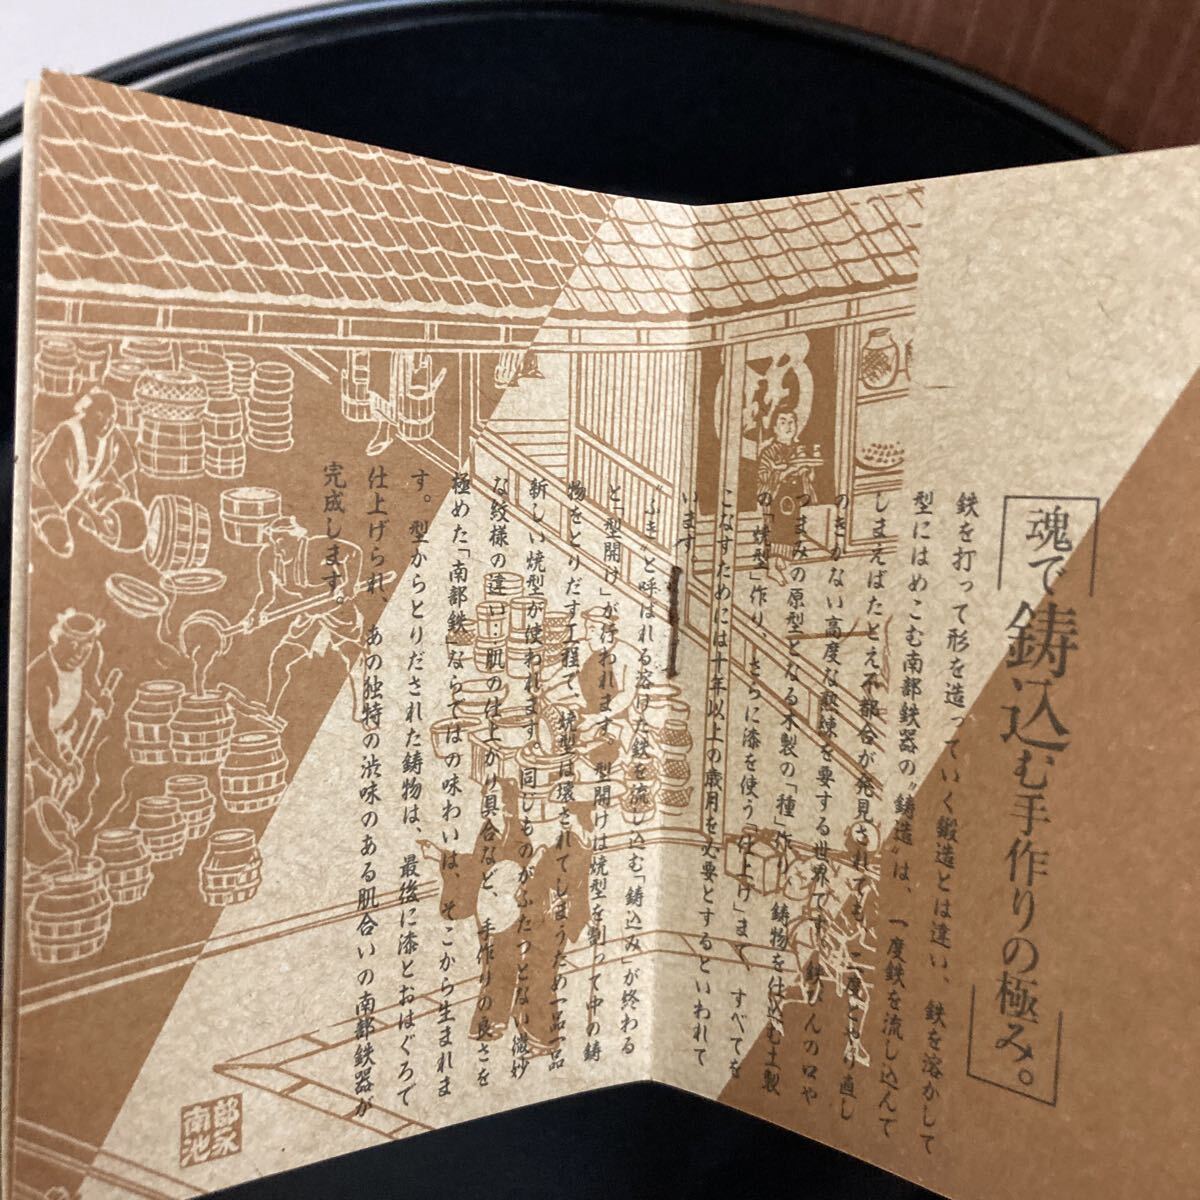 魂で鋳込む手作りの極み。
鉄を打って形を造っていく鍛造とは違い、鉄を溶かして
型にはめこむ南部鉄器の〝鋳造〟は、一度鉄を流し込んで
しまえばたとえ不都合が発見されても、二度とやり直し
のきかない高度な熟練を要する世界です。鉄びんの口や
つまみの原型となる木製の「種」作り、鋳物を仕込む土製
の「焼型」作り、さらに漆を使う「仕上げ」まで すべてを
こなすためには十年以上の歳月を必要とするといわれて
います。
〝ふき〟と呼ばれる溶けた鉄を流し込む「鋳込み」が終わる
と「型開け」が行われます。型開けは焼型を割って中の鋳
物をとりだす工程で、焼型は壊されてしまうため一品一品
新しい焼型が使われます。同じものがふたつとない微妙
な紋様の違い…肌の仕上がり具合など、手作りの良さを
極めた「南部鉄」ならではの味わいは、そこから生まれま
す。型からとりだされた鋳物は、最後に漆とおはぐろで
仕上げられ、あの独特の渋味のある肌合いの南部鉄器が
完成します。
南部
池永